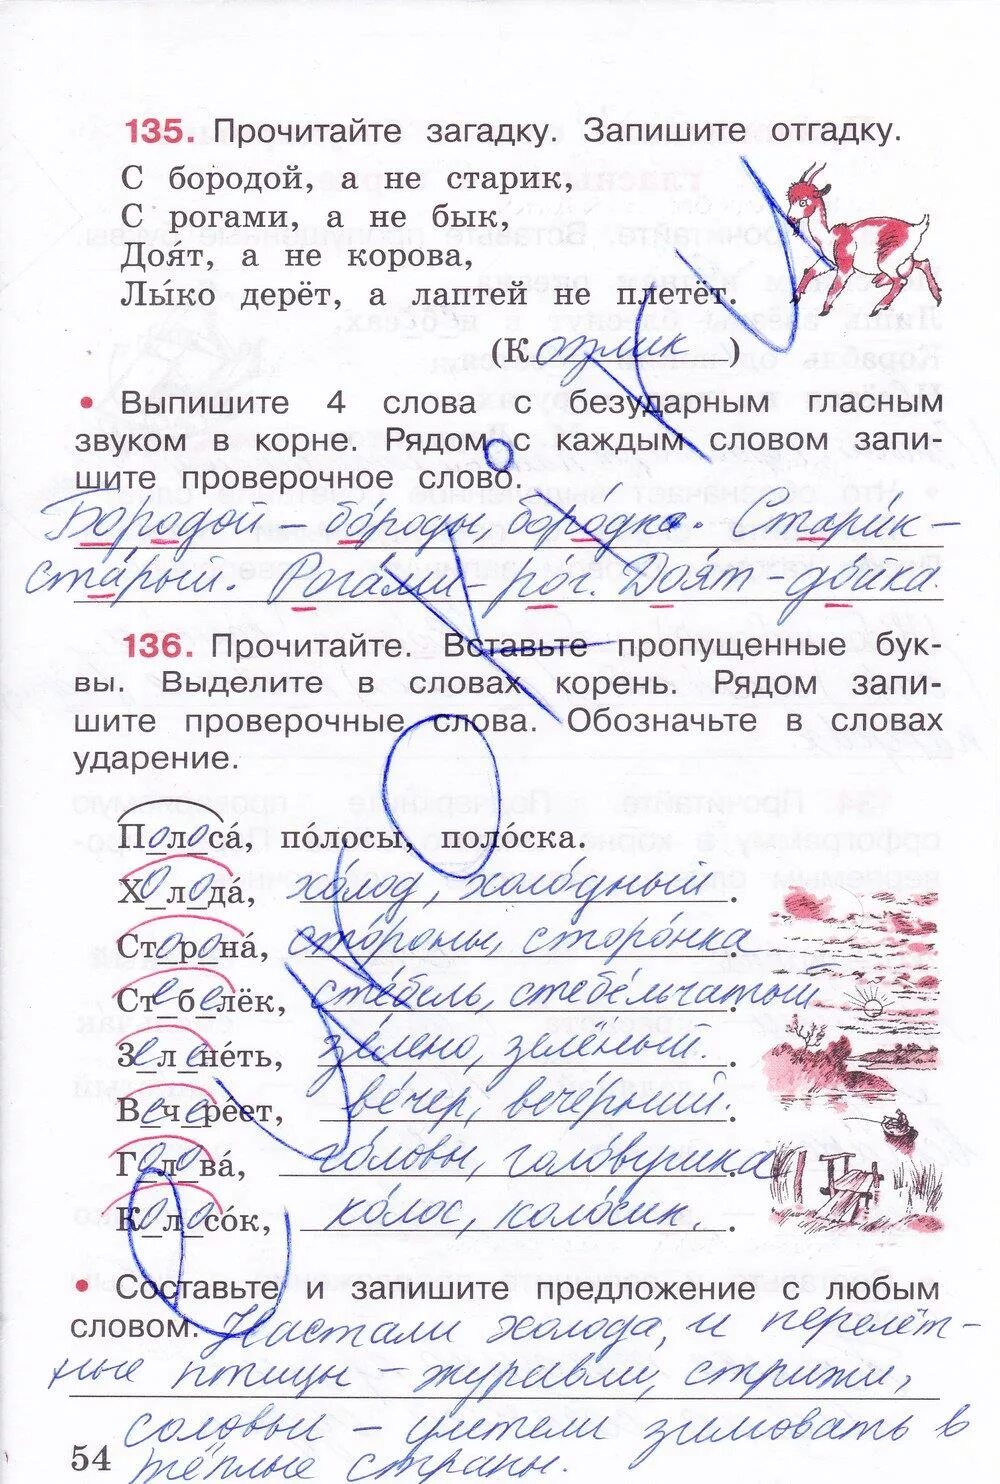 135. Прочитайте загадку. Запишите отгадку.
С бородой, а не старик,
С рогами, а не бык,
Доя́т, а не корова,
Лы́ко дерёт, а лаптей не плетёт.
(Козлик)
• Выпишите 4 слова с безударным гласным
звуком в корне. Рядом с каждым словом запи-
шите проверочное слово.
Бородой – бо́роды, боро́дка. Стари́к –
ста́рый. Рога́ми – рог. Доя́т – до́йка.
136. Прочитайте. Вставьте пропущенные бук-
вы. Выделите в словах корень. Рядом запи-
шите проверочные слова. Обозначьте в словах
ударение.
Полоса́, по́лосы, поло́ска.
Холода́, хо́лод, холо́дный.
Сторона́, сто́роны, сторо́нка
Стебелёк, сте́бель, стебе́льчатый
Зелене́ть, зе́лено, зелёный.
Вечере́ет, ве́чер, вече́рний.
Голова́, го́ловы, голо́вушка
Колосо́к, ко́лос, коло́сик.
• Составьте и запишите предложение с любым
словом. Настали холода, и перелёт-
ные птицы – журавли, стрижи,
соловьи – улетели зимовать в
54 тёплые страны.